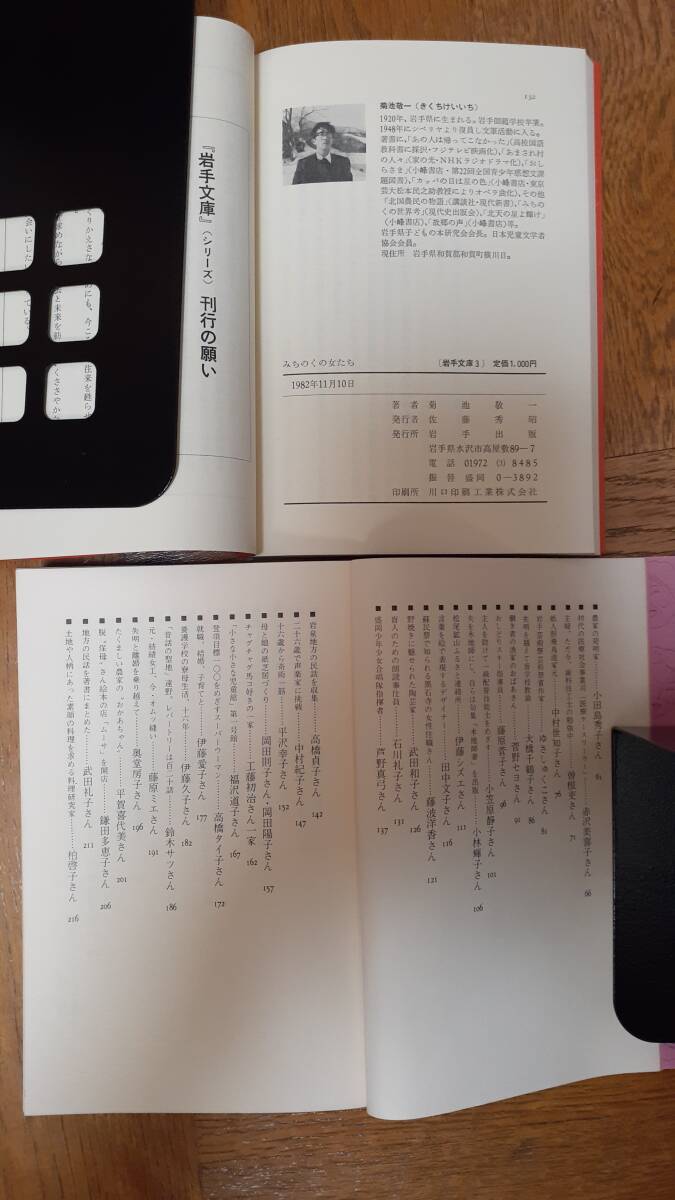 『岩手文庫』〈シリーズ〉 刊行の願い
くりかえさな
求めながら
会いにした
めにも、今こ
と未来を紡
ている。
往来を経らせ
くささやか
132
菊池敬一(きくちけいいち)
1920年、岩手県に生まれる。岩手師範学校卒業。
1948年にシベリヤより復員し文筆活動に入る。
著書に、「あの人は帰ってこなかった」(高校国語
教科書に採択・フジテレビ映画化)、「あまされ村
の人々」(家の光・NHKラジオドラマ化)、「おし
らさま」(小峰書店・第22回全国青少年感想文課
題図書)、「カッパの目は星の色」(小峰書店・東京
芸大松本民之助教授によりオペラ曲化)、その他
「北国農民の物語」(講談社・現代新書)、「みちの
くの世界考」(現代史出版会)、「北天の星よ輝け」
(小峰書店)、「故郷の声」(小峰書店)等。
岩手県子どもの本研究会会長。日本児童文学者
協会会員。
現住所 岩手県和賀郡和賀町横川目。
みちのくの女たち 〔岩手文庫3〕 定価1,000円
1982年11月10日
著者 菊池敬一
発行者 佐藤秀昭
発行所 岩手出版
岩手県水沢市高屋敷89−7
電話 01972 (3) 8485
振替 盛岡 0−3892
印刷所 川口印刷工業株式会社
■ 農家の発明家……小田島秀子さん 61
赤沢美喜子さん 66
■ 主婦、ただ今、歯科技工士の勉強中……曽根東さん 71
中村世知子さん 76
ゆさしゅくこさん 81
大橋千鶴子さん 86
■ 働き者の漁家のおばあさん……菅野セヨさん 91
藤原芸子さん 96
小笠原静子さん 101
小林輝子さん 106
■ 松尾鉱山ふるさと連絡所……伊藤シズエさん 111
■ 言葉を絵で表現するデザイナー……田中文子さん 116
■ 蘇民祭で知られる黒石寺の女性住職さん……藤波洋香さん 121
■ 野焼きに魅せられた陶芸家……武田和子さん 126
■ 盲人のための朗読奉仕員……石川礼子さん 131
■ 盛岡少年少女合唱隊指揮者……芦野真弓さん 137
■ 岩泉地方の民話を収集……高橋貞子さん 142
■ 二十六歳で声楽家に挑戦……中村紀子さん 147
■ 十六歳から奇術一筋……平沢幸子さん 152
■ 母と娘の紙芝居づくり……岡田則子さん・岡田陽子さん 157
■ チャグチャグ馬コ好きの一家……工藤初治さん一家 162
■ 「小さな小さな児童館」第一号館……福沢道子さん 167
■ 登頂目標一〇〇をめざすスーパーウーマン……高橋タイ子さん 172
■ 就職、結婚、子育てと……伊藤愛子さん 177
■ 養護学校の寮母生活、十六年……伊藤久子さん 182
■ 「昔話の聖地」遠野、レパートリーは百二十話……鈴木サツさん 186
■ 元・紡績女工、今・オムツ縫い……藤原ミエさん 191
■ 失明と離婚を乗り越えて……奥堂房子さん 196
■ たくましい農家の“おかあちゃん”……平賀喜代美さん 201
■ 脱〝保母〟さん絵本の店「ムーサ」を開店……鎌田多恵子さん 206
■ 地方の民話を著書にまとめた……武田礼子さん 211
■ 土地や人柄にあった素顔の料理を求める料理研究家……柏啓子さん 216